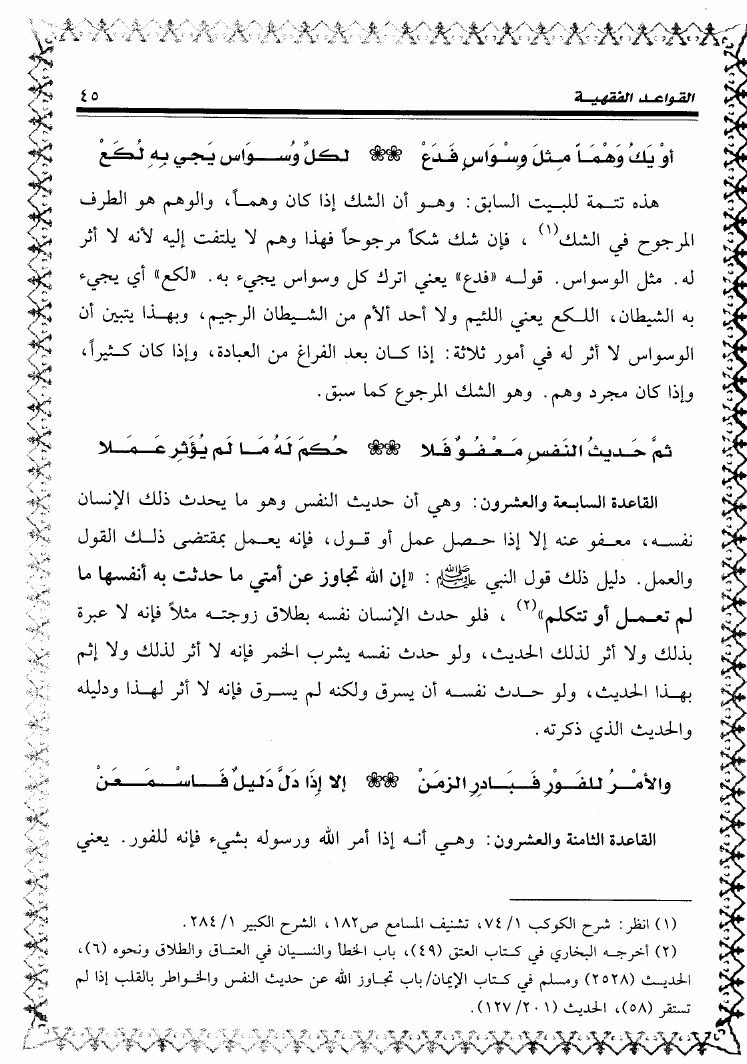 القواعد الفقهية ٤٥
أوْ يَكُ وَهْمَاً مِثلَ وِسْوَاسٍ فَدَعْ ❀❀ لكلِّ وُسـواسٍ يَجي بِهِ لُكَعْ
هذه تتمة للبيت السابق: وهو أن الشك إذا كان وهماً، والوهم هو الطرف
المرجوح في الشك(١) ، فإن شك شكاً مرجوحاً فهذا وهم لا يلتفت إليه لأنه لا أثر
له. مثل الوسواس. قوله «فدع» يعني اترك كل وسواس يجيء به. «لكع» أي يجيء
به الشيطان، اللكع يعني اللئيم ولا أحد ألأم من الشيطان الرجيم، وبهذا يتبين أن
الوسواس لا أثر له في أمور ثلاثة: إذا كان بعد الفراغ من العبادة، وإذا كان كثيراً،
وإذا كان مجرد وهم. وهو الشك المرجوع كما سبق.
ثمَّ حَديثُ النَفسِ مَعْفُوٌ فَلا ❀❀ حُكمَ لَهُ مَا لَم يُؤَثرِ عَمَلا
القاعدة السابعة والعشرون: وهي أن حديث النفس وهو ما يحدث ذلك الإنسان
نفسه، معفو عنه إلا إذا حصل عمل أو قول، فإنه يعمل بمقتضى ذلك القول
والعمل. دليل ذلك قول النبي ﷺ : «إن الله تجاوز عن أمتي ما حدثت به أنفسها ما
لم تعمل أو تتكلم»(٢) ، فلو حدث الإنسان نفسه بطلاق زوجته مثلاً فإنه لا عبرة
بذلك ولا أثر لذلك الحديث، ولو حدث نفسه يشرب الخمر فإنه لا أثر لذلك ولا إثم
بهذا الحديث، ولو حدث نفسه أن يسرق ولكنه لم يسرق فإنه لا أثر لهذا ودليله
والحديث الذي ذكرته.
والأمْرُ للفَوْرِ فَبَادرِ الزمَنْ ❀❀ إلا إذَا دَلَّ دَليلٌ فَاسْمَعَنْ
القاعدة الثامنة والعشرون: وهي أنه إذا أمر الله ورسوله بشيء فإنه للفور. يعني
(١) انظر: شرح الكوكب ١/ ٧٤، تشنيف المسامع ص١٨٢، الشرح الكبير ١/ ٢٨٤.
(٢) أخرجه البخاري في كتاب العتق (٤٩)، باب الخطأ والنسيان في العتاق والطلاق ونحوه (٦)،
الحديث (٢٥٢٨) ومسلم في كتاب الإيمان/ باب تجاوز الله عن حديث النفس والخواطر بالقلب إذا لم
تستقر (٥٨)، الحديث (٢٠١/ ١٢٧).